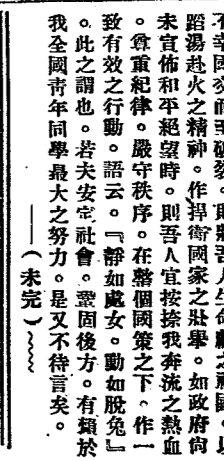 幸國交而至破裂。則將吾人生命獻之祖國。以
蹈湯赴火之精神。作捍衛國家之壯舉。如政府尙
未宣佈和平絕望時。則吾人宜按捺我奔流之熱血
。尊重紀律。嚴守秩序。在整個國策之下。作一
致有效之行動。語云。『靜如處女。動如脫兔』
。此之謂也。若夫安定社會。鞏固後方。有賴於
我全國靑年同學最大之努力。是又不待言矣。
——（未完）